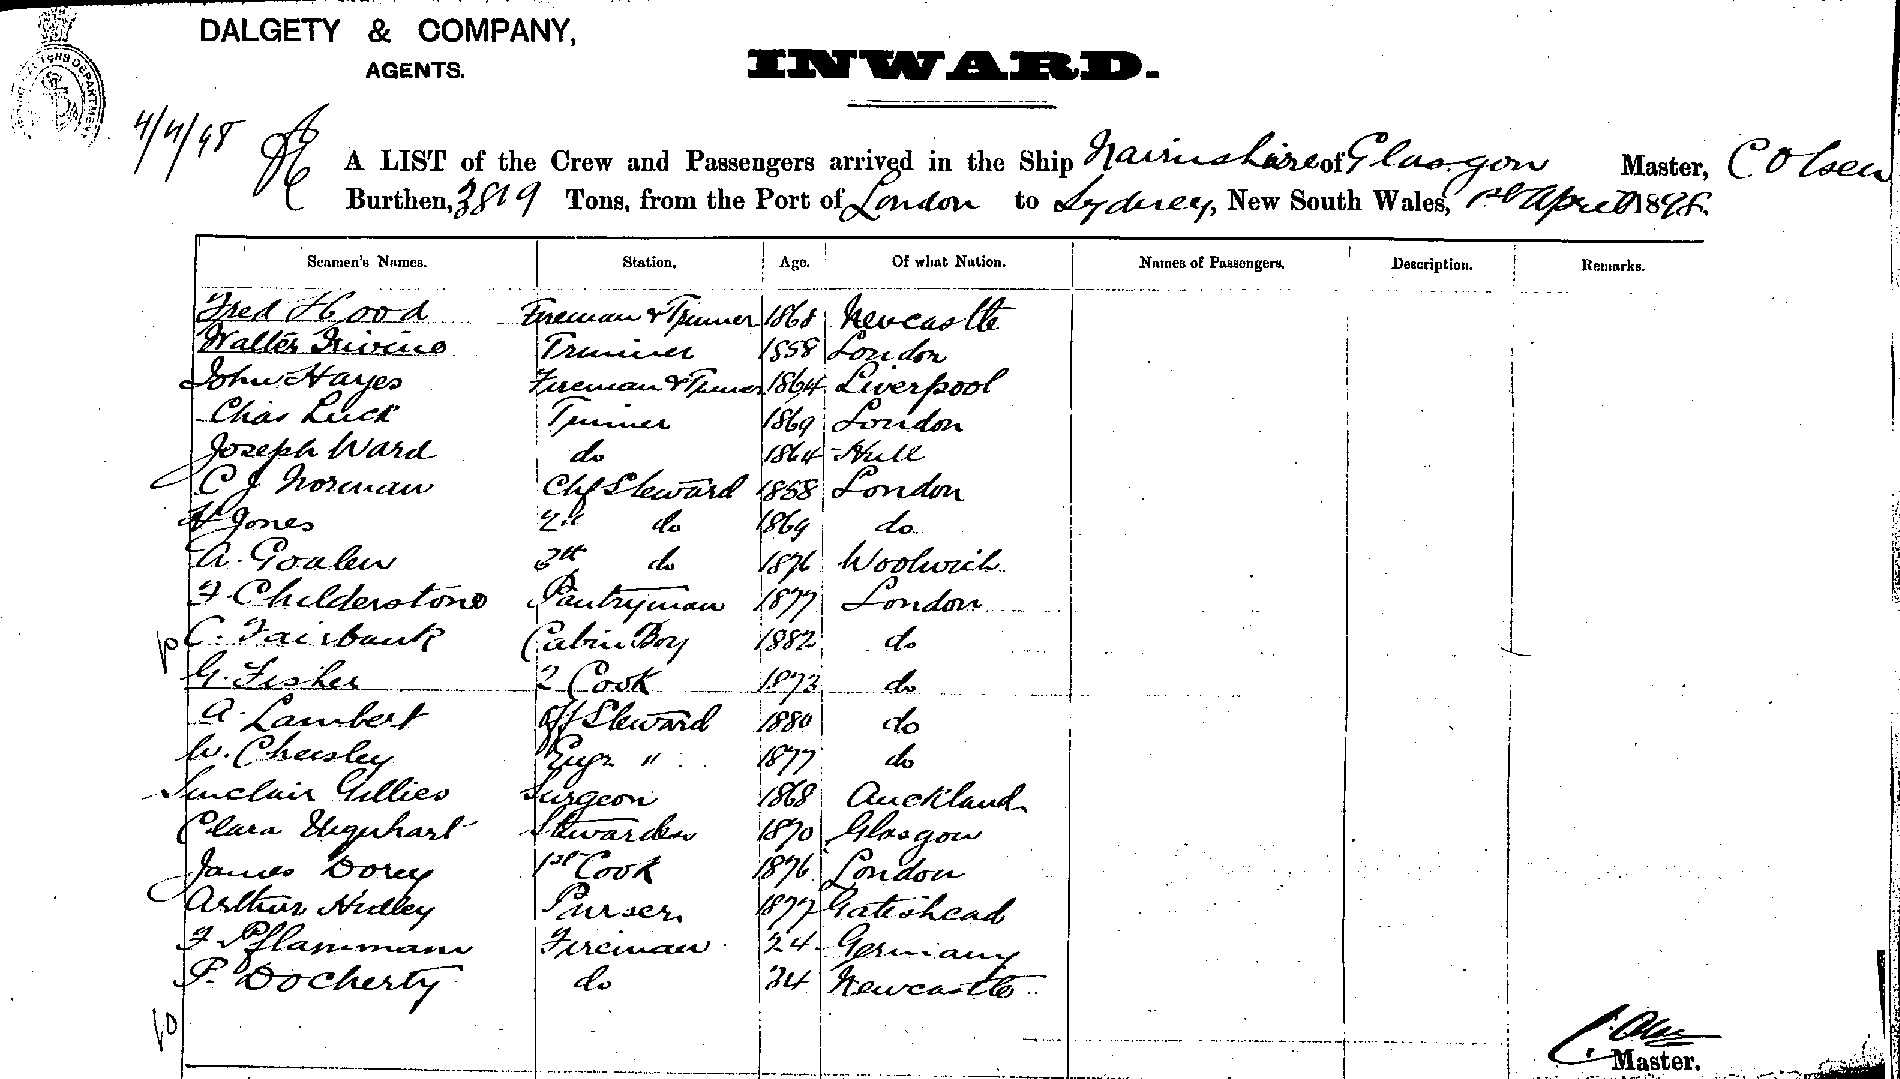 DALGETY & COMPANY,
AGENTS.
INWARD.
4/4/98
A LIST of the Crew and Passengers arrived in the Ship Nairnshire of Glasgow Master, C Olsen
Burthen, 3819 Tons, from the Port of London to Sydney, New South Wales, 1st April 1898.
Seamen's Names. Station. Age. Of what Nation. Names of Passengers. Description. Remarks.
Fred Hood Fireman & Trimmer 1868 Newcastle
Walter Trimmer 1858 London
John Hayes Fireman & Trimmer 1864 Liverpool
Chas Luck Trimmer 1869 London
Joseph Ward do 1864 Hull
C J Norman Chf Steward 1858 London
H Jones 2nd do 1869 do
A. Goalen 3th do 1876 Woolwich
F Childerstone Pantryman 1877 London
C. Fairbank Cabin Boy 1882 do
G. Fisher 2 Cook 1873 do
A. Lambert Off Steward 1880 do
W. Cheesley Engr " 1877 do
Sinclair Gillies Surgeon 1868 Auckland
Clara Urquhart Stewardess 1870 Glasgow
James Dorey 1st Cook 1876 London
Arthur Hidley Purser 1877 Gateshead
F Pflammann Fireman 24 Germany
P. Docherty do 34 Newcastle
Master.